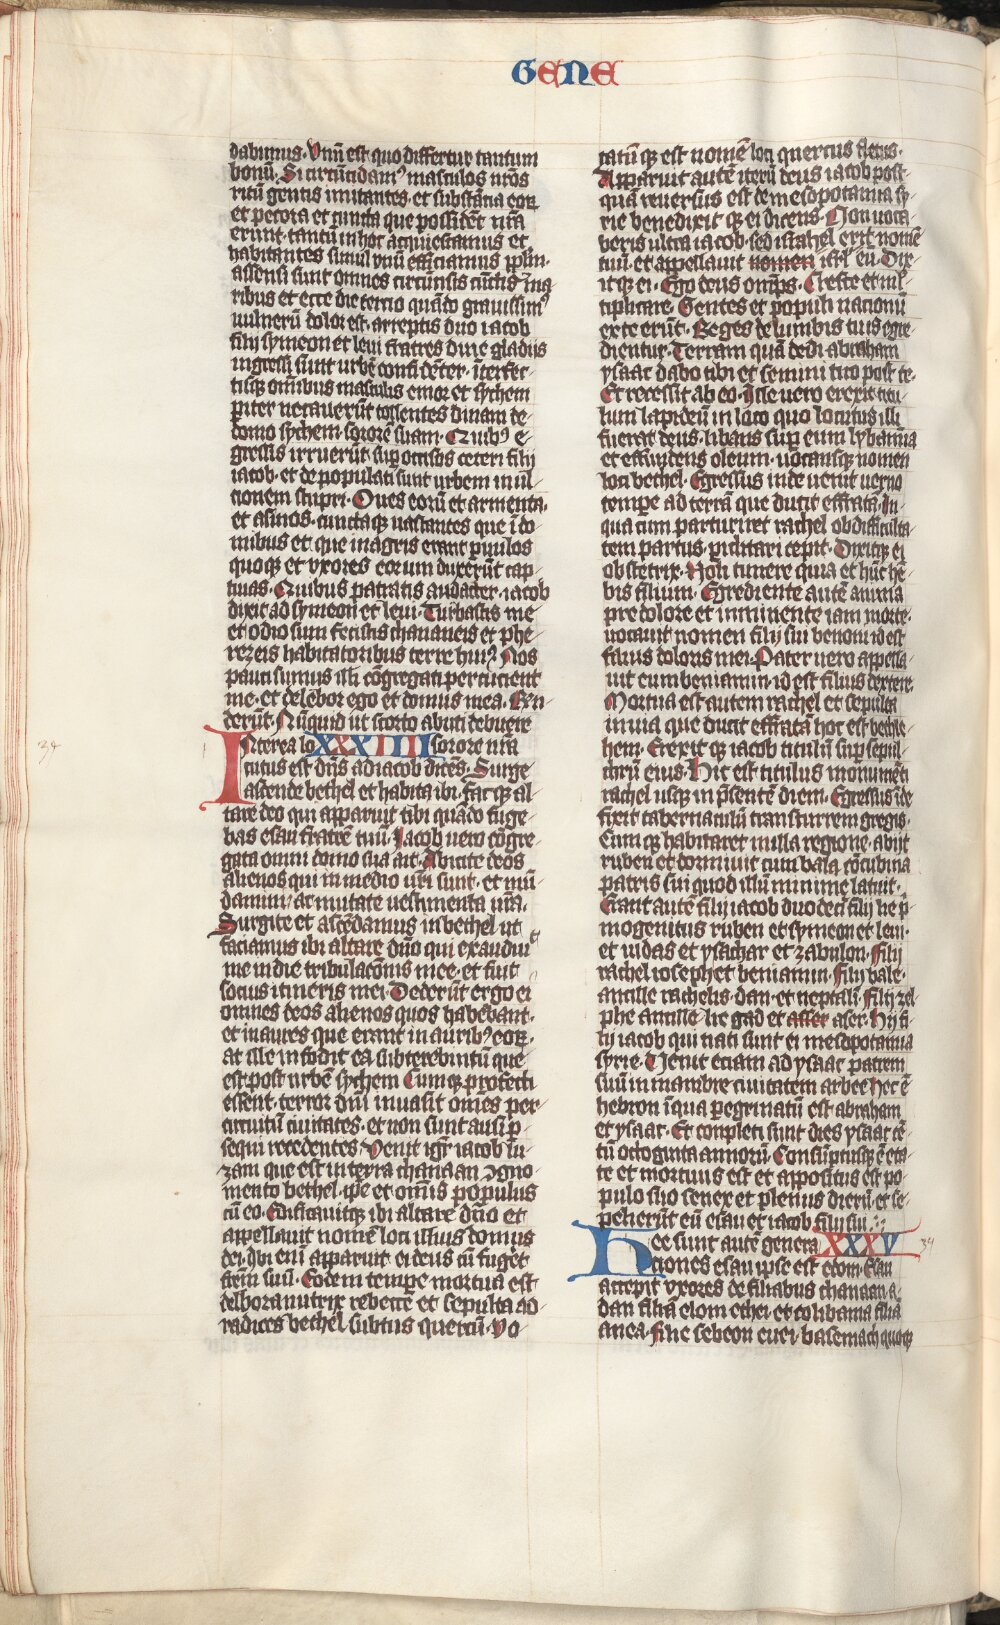 GENE
dabimus. Vnū est quo differtur tantum
bonū. Si circūcidamꝰ masculos nr̄os
ritū gentis imitantes. et substātia eoꝝ
et pecora et cuncta que possidēt nr̄a
erunt. tantū in hoc acquiescamus et
habitantes simul vnū efficiamus pplm̄.
assensi sunt omnes circūcisis cūctis ma
ribus et ecce die tercio quādo grauissimꝰ
vulnerū dolor est. arreptis duo iacob
filij symeon et leui fratres dine gladijs
ingressi sunt urbē confidēter. īterfec
tisq̄ om̄ibus masculis emor et sychem
ꝑiter necauerūt tollentes dinam de
domo sychem sororē suam. Quibꝰ e
gressis irruerūt suꝑ occisos ceteri filij
iacob. et depopulati sunt urbem in ul
tionem stupri. Oues eorū et armenta.
et asinos. cunctaq̄ uastantes que ī do
mibus et que in agris erant ꝑuulos
quoq̄ et vxores eorum duxerūt cap
tiuas. Quibus patratis audacter. iacob
dixit ad symeon et leui. Turbastis me
et odiosum fecistis chananeis et phe
rezeis habitatoribus terre huiꝰ. Nos
pauci sumus illi cōgregati percucient
me. et delebor ego et domus mea. Rn̄
derūt. Nūquid ut scorto abuti debuere
Nterea lo XXXIIII sorore nr̄a
cutus est dn̄s ad iacob dicēs. Surge
ascende bethel et habita ibi. facq̄ al
tare deo qui apparuit tibi quādo fuge
bas esau fratrē tuū. Iacob uero cōgre
gata omni domo sua ait. Abicite deos
alienos qui in medio ur̄i sunt. et mū
damini ac mutate uestimenta ur̄a.
Surgite et ascēdamus in bethel ut
faciamus ibi altare dn̄o qui exaudiuit
me in die tribulacōnis mee. et fuit
socius itineris mei. Dederūt ergo ei
omnes deos alienos quos habebant.
et inaures que erant in auribꝰ eoꝝ.
at ille infodit ea subterebintū que
est post urbē sychem Cumq̄ profecti
essent. terror dn̄i inuasit om̄es per
circuitū ciuitates. et non sunt ausi ꝑ
sequi recedentes. Venit igr̄ iacob lu
zam que est in terra chanaan cogno
mento bethel. ip̄e et om̄is populus
cū eo. Edificauitq̄ ibi altare dn̄o et
appellauit nomē loci illius domus
dei. Ibi enī apparuit ei deus cū fugēt
fr̄em suū. Eodem tempe mortua est
delbora nutrix rebecce et sepulta ad
radices bethel subtus quercū. Vo
catū q̄ est nomē loci quercus fletus.
Apparuit autē iterū deus iacob post
quā reuersus est de mesopotamia sy
rie benedixit q̄ ei dicens. Non uoca
beris ultra iacob. sed israhel erit nomē
tuū. et appellauit nomen isrl̄ eū. Dix
itq̄ ei. Ego deus om̄ps. Cresce et ml̄
tiplicare. Gentes et populi nacionū
ex te erūt. Reges de lumbis tuis egre
dientur. Terram quā dedi abraham
ysaac dabo tibi et semini tuo post te.
Et recessit ab eo. Ille uero erexit titu
lum lapideū in loco quo locutus illi
fuerat deus. libans suꝑ eum lybamīa
et effundens oleum. uocansq̄ nomen
loci bethel. Egressus inde uenit uerno
tempe ad terrā que ducit effratā. In
qua cum parturiret rachel ob difficulta
tem partus. piclitari cepit. Dixitq̄ ei
obstetrix. Noli timere quia et hūc hē
bis filium. Egrediente autē anima
pre dolore et iminente iam morte.
uocauit nomen filij sui benoni id est
filius doloris mei. Pater uero appella
uit eum beniamin. id est filius dextere.
Mortua est autem rachel et sepulta
in uia que ducit effratā hoc est bethle
hem. Erexit q̄ iacob titulū suꝑ sepul
chrū eius. Hic est titulus monumēti
rachel usq̄ in p̄sentē diem. Egressus īde
fixit tabernaculū trans turrem gregis.
Cum q̄ habitaret in illa regione. abijt
ruben et dormiuit cum bala cōcubina
patris sui quod illū minime latuit.
Erant autē filij iacob duodeci filij lie p̄
mogenitus ruben et symeon et leui.
et iudas et ysachar et zabulon. Filij
rachel ioseph et beniamin. Filij bale.
ancille rachelis. dan. et neptali. Filij zel
phe ancille lie gad et asser aser. Hij fi
lij iacob qui nati sunt ei mesopotamia
syrie. Venit eciam ad ysaac patrem
suū in mambre ciuitatem arbee hec ē
hebron ī qua peregrinatū est abraham
et ysaac. Et conpleti sunt dies ysaac cē
tū octoginta annorū. Consūptusq̄ ē eta
te et mortuus est et appositus est po
pulo suo senex et plenus dierū. et se
pelierūt eū esau et iacob filij sui.
Hee sunt autē genera XXXV
ciones esau ipse est edom. Esau
accepit vxores de filiabus chanaan. a
dan filiā elom ethei. et colibama filiā
anea. filie sebeon euei. basemath quoq̄
34
34